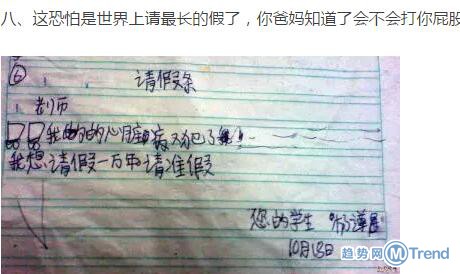 八、这恐怕是世界上请最长的假了，你爸妈知道了会不会打你屁股
⑥ 请假条
老师
我的的心脏病又犯了
我想请假一万年请准假
您的学生 杨谨屋
10月18日
趋势网 MTrend